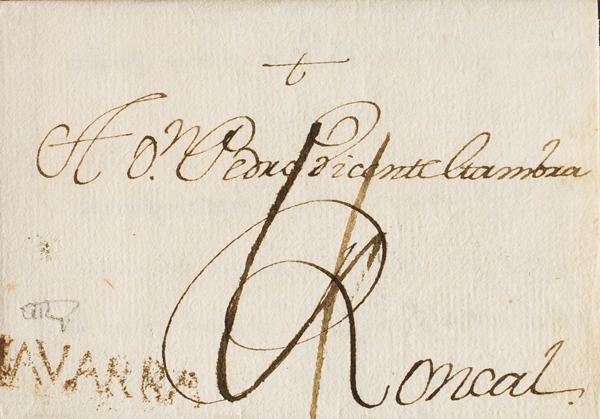 A D.ⁿ Pedro Vicente Gambra
4
Roncal.
NAVARRA